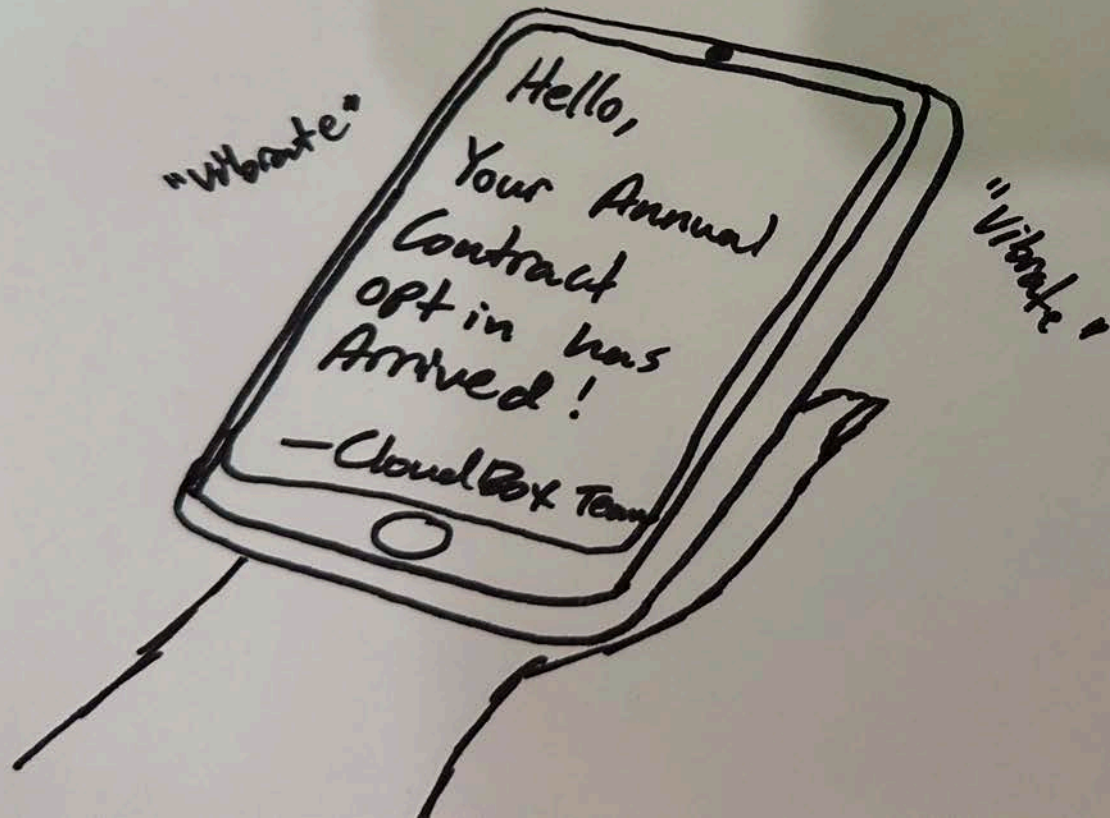 "vibrate"
Hello,
Your Annual
Contract
opt in has
Arrived!
—CloudBox Team
"Vibrate"